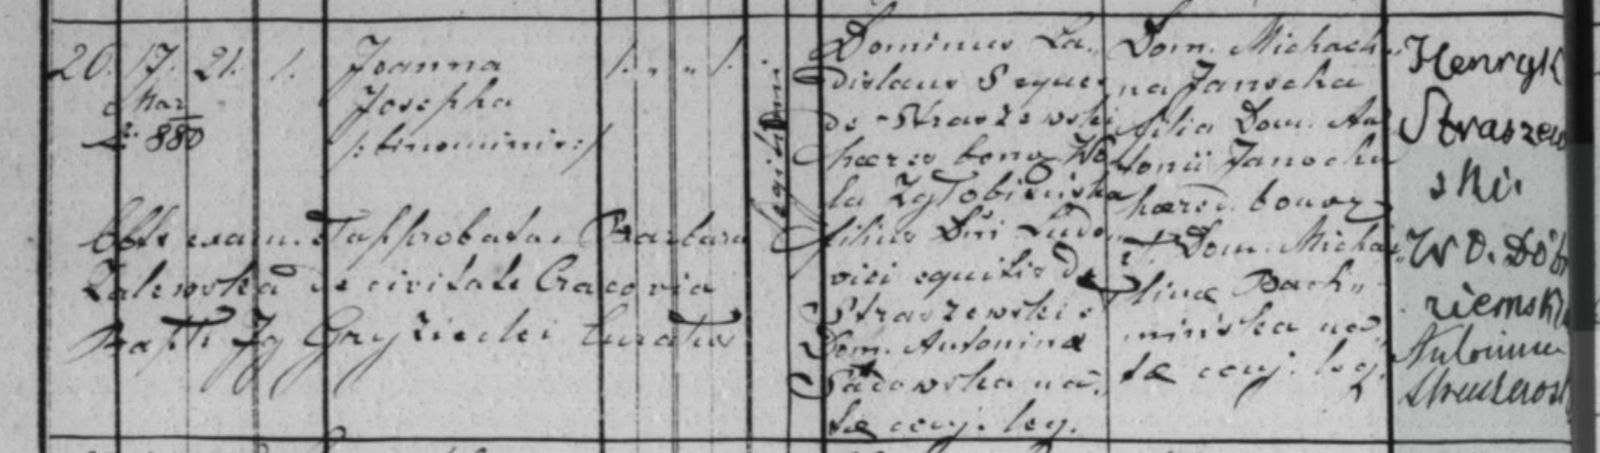 20. 17. 21. 1.
Mar
880
Joanna
Josepha
/: binominis :/
1. " " 1.
Legitimi
Obst. exam. et approbata Barbara
Zalewska de civitate Cracovia
Bapt. Ig Gryziecki Curatus
Dominus La„
dislaus Eques
de Straszewski
haeres bonor. Wo
la Zgłobińska
filius Dni Ludo„
vici equitis de
Straszewski &
Dom. Antonina
Sadowska na„
tae conj. leg.
Dom. Michali„
na Janocha
filia Dom. An
tonii Janocha
haered. bonor.
et Dom. Micha„
linae Bach„
mińska na„
tae conj. leg.
Henryk
Straszew
ski.
W D. Dob
ziemski
Antonina